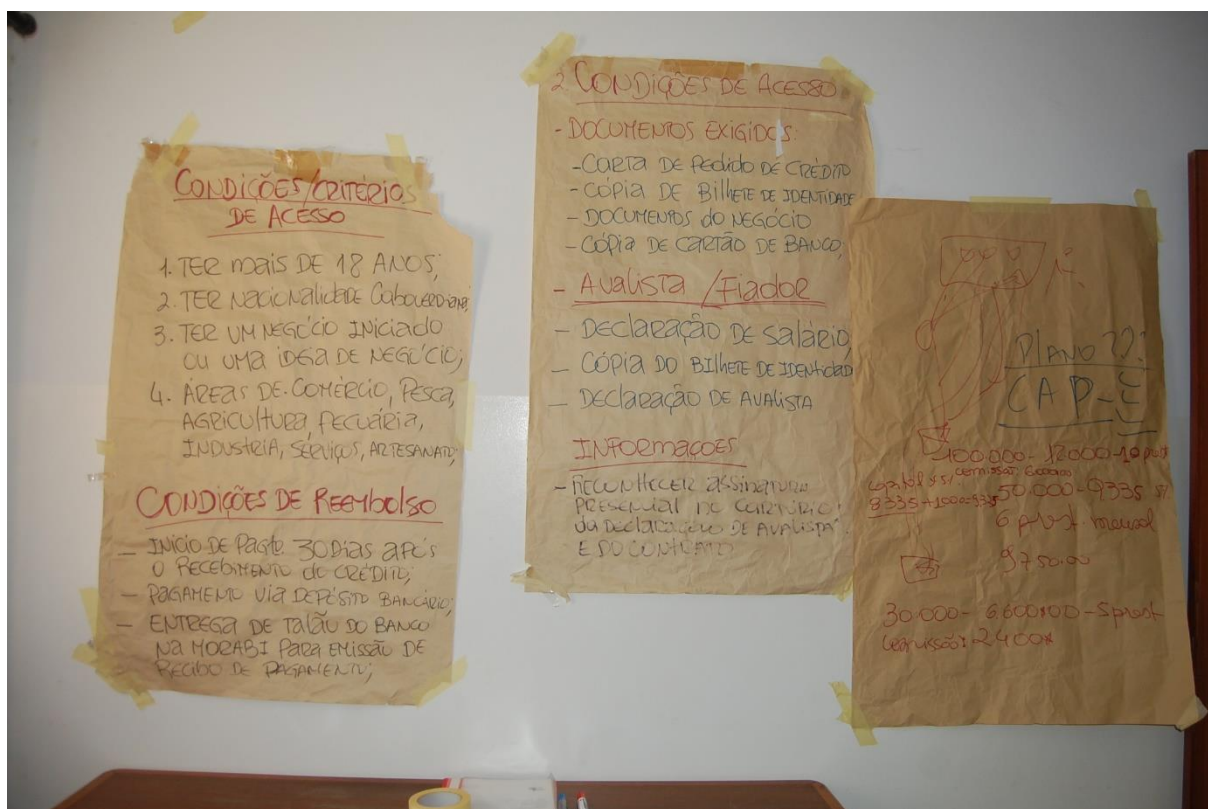 CONDIÇÕES/CRITÉRIOS
DE ACESSO
1. TER mais DE 18 ANOS;
2. TER NacioNaliDaDE CaboverDiana;
3. TER UM NEGÓCIO INICIADO
OU UMA IDEIA DE NEGÓCIO;
4. ÁREAS DE COMÉRCIO, PESCA,
AGRICULTURA, PECUÁRIA,
INDUSTRIA, SERVIÇOS, ARTESANATO;
CONDIÇÕES DE REEMBOLSO
- INÍCIO DE PAGTE 30 DIAS APÓS
O RECEBIMENTO do CRÉDITO;
- PAGAMENTO VIA DEPÓSITO BANCÁRIO;
- ENTREGA DE TALÃO DO BANCO
NA MORABI PARA EMISSÃO DE
RECIBO DE PAGAMENTO;
2. CONDIÇÕES DE ACESSO
- DOCUMENTOS EXIGIDOS:
- CARTA DE PEDIDO DE CRÉDITO
- CÓPIA DE BILHETE DE IDENTIDADE
- DOCUMENTOS do NEGÓCIO
- CÓPIA DE CARTÃO DE BANCO;
- AVALISTA / FIADOR
- DECLARAÇÃO DE SALÁRIO,
- CÓPIA DO BILHETE DE IDENTIDAD
- DECLARAÇÃO DE AVALISTA
INFORMAÇOES
- RECONHECER ASSINATURA
PRESENCIAL NO CARTÓRIO
DA DECLARAÇÃO DE AVALISTA
E DO CONTRATO
PLANO ??!
CAP-
100.000 - 12000 - 10 prest
comissão: 6000x00
8335+1000=9335
50.000 - 9335
6 prest. mensal
9750.00
30.000 - 6.600x00 - 5 prest
Comissão: 2400x